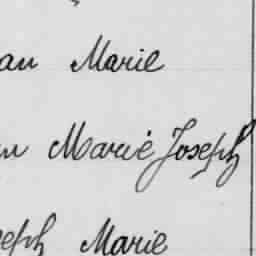 an Marie
n Marie Joseph
seph Marie